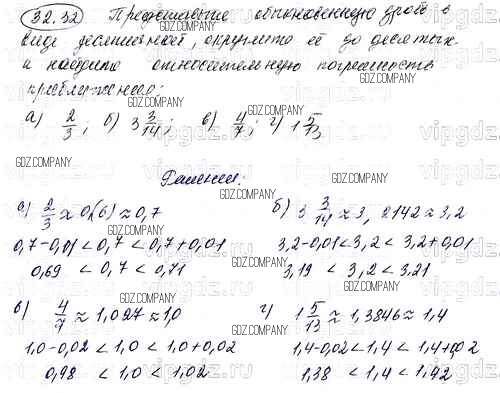 32.32 Представьте обыкновенную дробь в
виде десятичной, округлите её до десятых
и найдите относительную погрешность
приближения:
а) 2/3; б) 3 3/14; в) 4/7; г) 1 5/13
Решение:
а) 2/3 ≈ 0,(6) ≈ 0,7
0,7-0,01 < 0,7 < 0,7+0,01
0,69 < 0,7 < 0,71
б) 3 3/14 ≈ 3,2142 ≈ 3,2
3,2-0,01 < 3,2 < 3,2+0,01
3,19 < 3,2 < 3,21
в) 4/7 ≈ 1,027 ≈ 1,0
1,0-0,02 < 1,0 < 1,0+0,02
0,98 < 1,0 < 1,02
г) 1 5/13 ≈ 1,3846 ≈ 1,4
1,4-0,02 < 1,4 < 1,4+0,02
1,38 < 1,4 < 1,42
GDZ.COMPANY
vipgdz